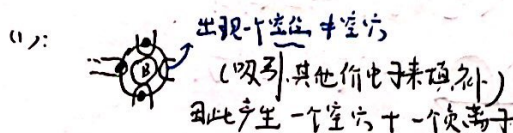 (1):
出现一个空位 中空穴
B
(吸引.其他价电子来填补)
因此产生一个空穴 + 一个负离子